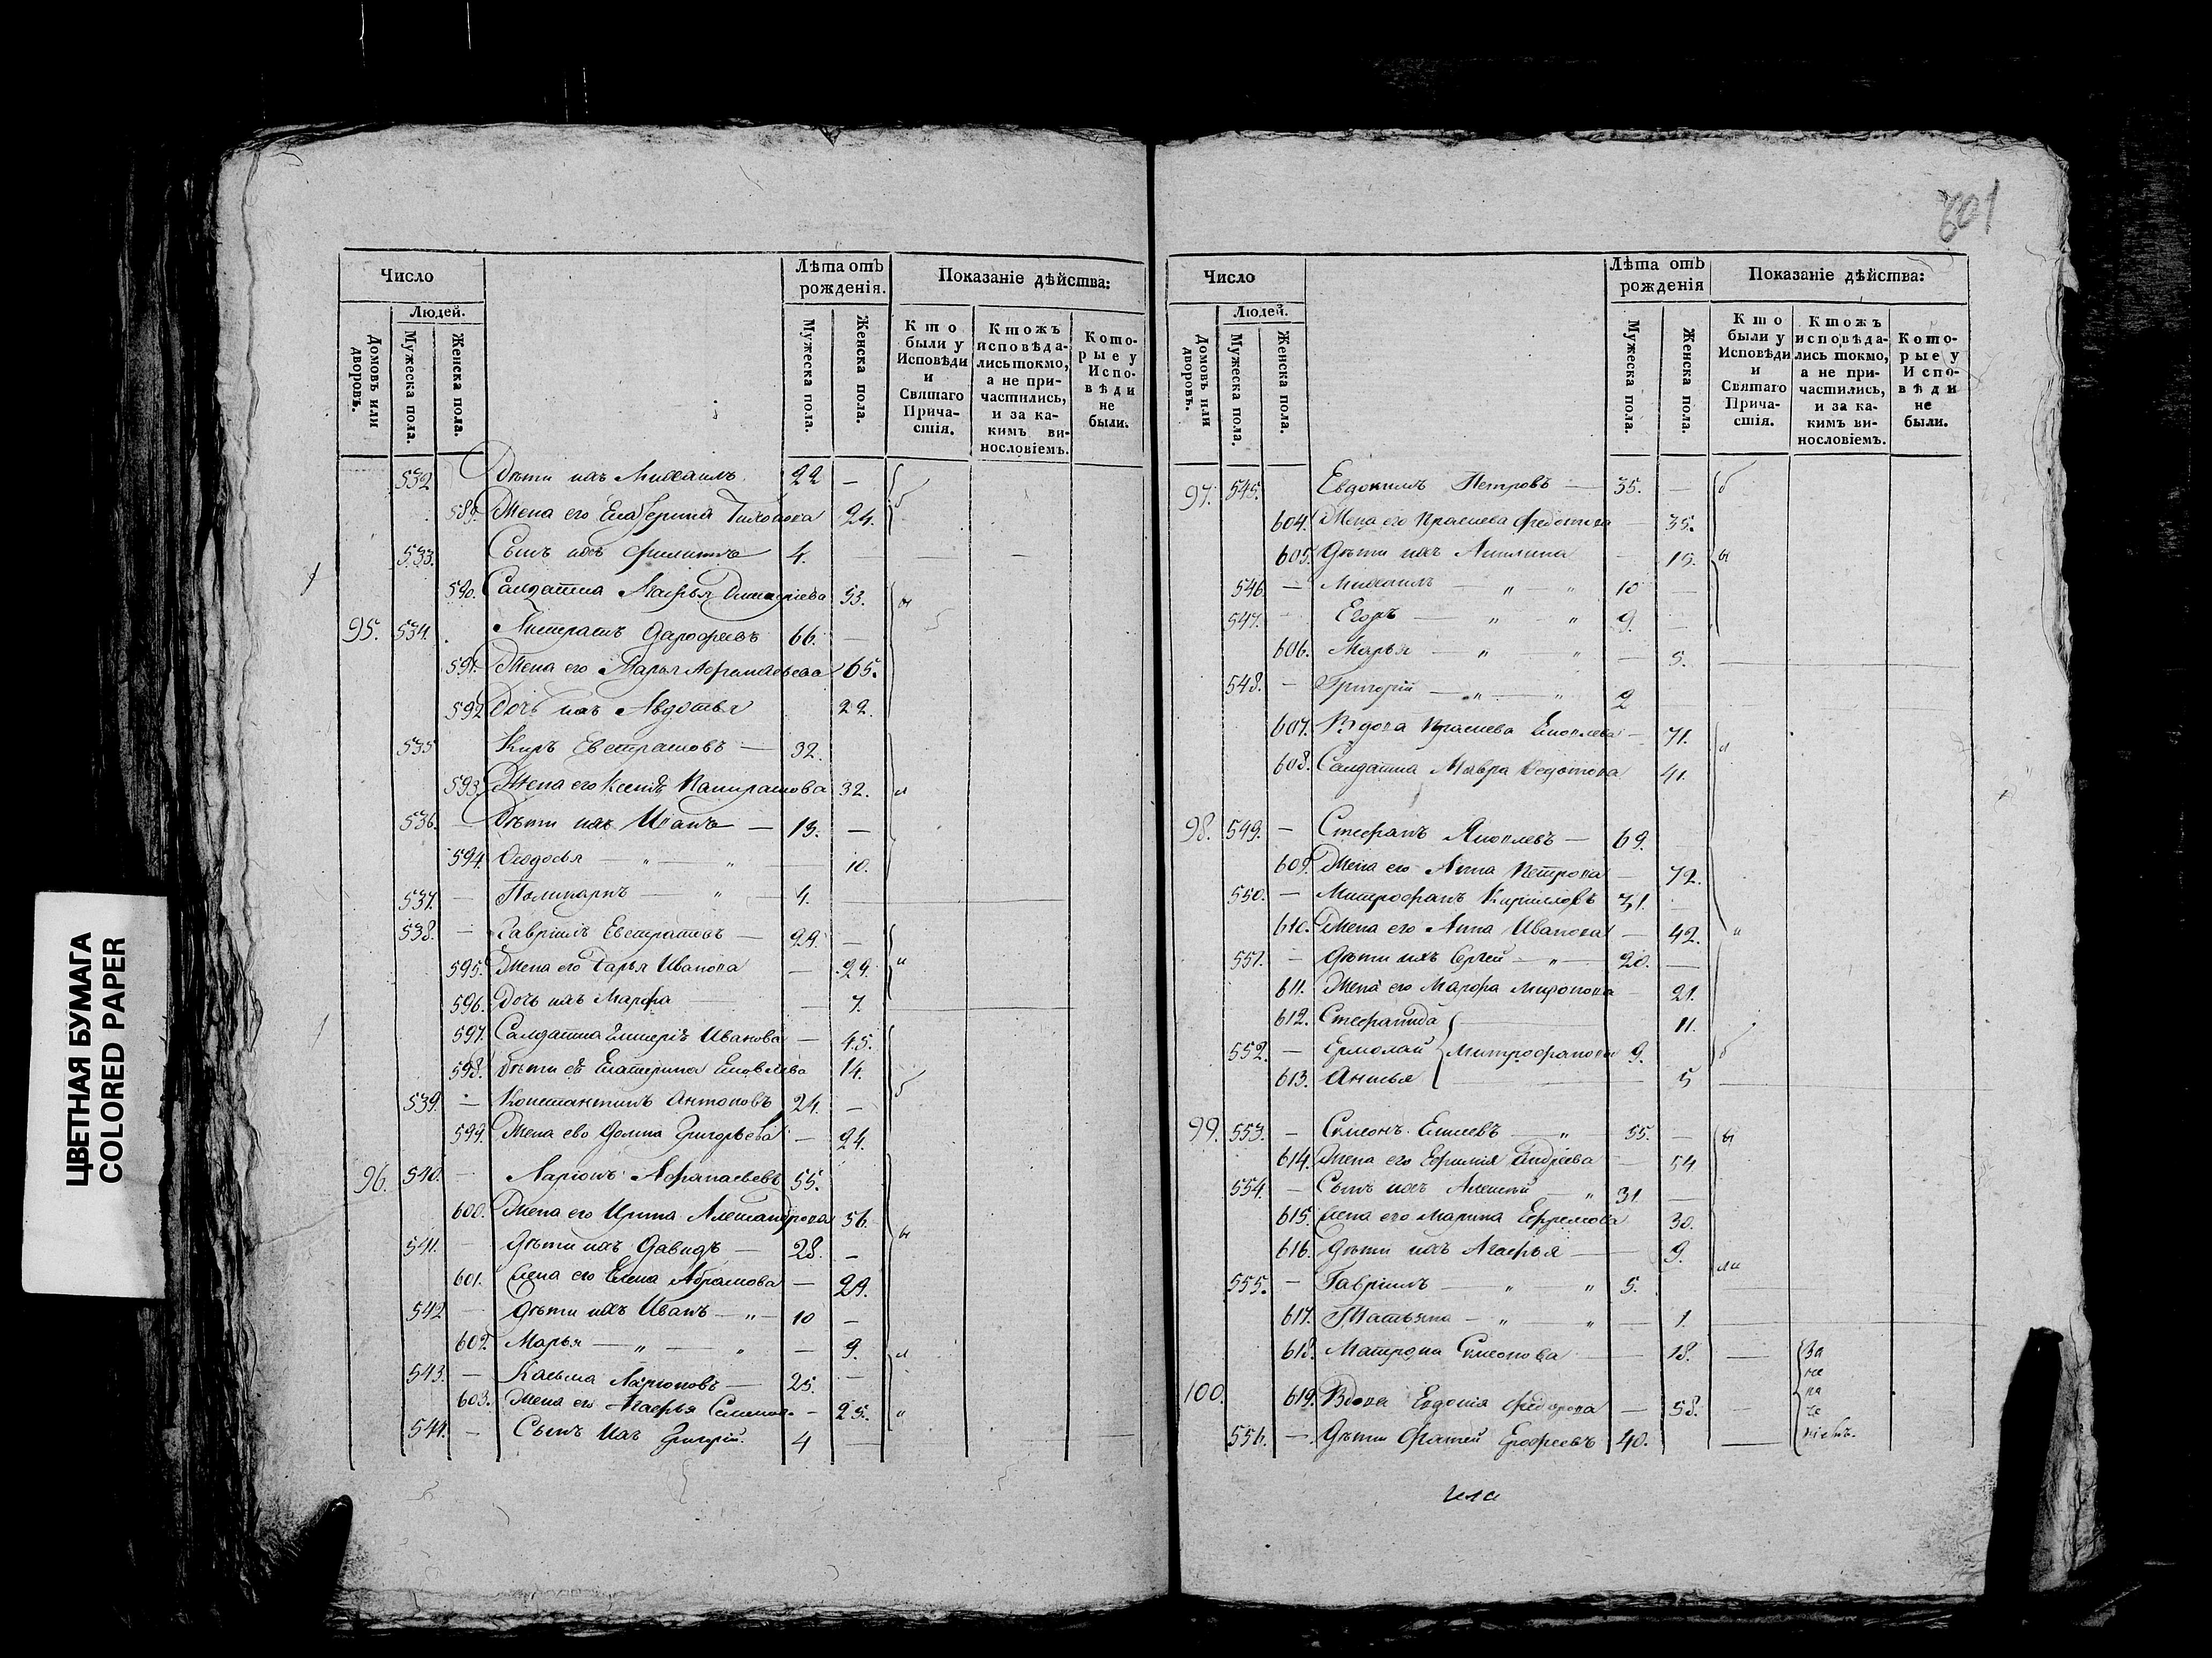 ЦВЕТНАЯ БУМАГА
COLORED PAPER
Число
Лѣта отъ рожденія.
Показаніе дѣйства:
Людей.
Домовъ или дворовъ.
Мужеска пола.
Женска пола.
Мужеска пола.
Женска пола.
Кто были у Исповѣди и Святаго Причастія.
Ктожъ исповѣдались токмо, а не причастились, и за какимъ винословіемъ.
Которые у Исповѣди не были.
532 Дѣти ихъ Михаилъ 22 —
589. Жена его Екатерина 24.
533. Сынъ ихъ Филиппъ 4.
590. Салдатка Агафья 53.
95. 534. Дарофеевъ 66. —
591. Жена его Марья 65.
592 Дочь ихъ Авдотья 22.
535 Киръ Евстратовъ — 32.
593. Жена его Ксенія 32.
536. — Дѣти ихъ Иванъ — 13. —
594. Ѳеодосья — " — " — 10.
537. — Поликарпъ — " — 4.
538. — Гавріилъ Евстратовъ — 29. —
595. Жена его Дарья Иванова — 29.
596. Дочь ихъ Марфа — 7.
597. Салдатка Иванова — 45.
598. Дѣти её Екатерина 14.
539. — Константинъ Антоновъ 24. —
599. Жена ево Григорьева — 24.
96. 540. — Ларіонъ Афанасьевъ 55.
600. Жена его Ирина Александрова 56.
541. — Дѣти ихъ Давидъ — 28. —
601. Жена его Елена Абрамова — 29.
542 — Дѣти ихъ Иванъ — " — 10 —
602. Марья — " — " — 9.
543. — Касьма Ларіоновъ — 25. —
603. Жена его Агафья — 25.
544. — Сынъ ихъ Григорій. 4 —
801
Число
Лѣта отъ рожденія
Показаніе дѣйства:
Людей.
Домовъ или дворовъ.
Мужеска пола.
Женска пола.
Мужеска пола.
Женска пола.
Кто были у Исповѣди и Святаго Причастія.
Ктожъ исповѣдались токмо, а не причастились, и за какимъ винословіемъ.
Которые у Исповѣди не были.
97. 545. Евдокимъ Петровъ — 35. —
604. Жена его Федотова — 35.
605. Дѣти ихъ Акилина — 15.
546. — Михаилъ — " — " 10 —
547. — Егоръ — " — " 9. —
606. Марья — " — " — 5.
548. — Григорій — " — " 2
607. Вдова — 71.
608. Салдатка Мавра 41.
98. 549. — Стефанъ Яковлевъ — 69.
609. Жена его Анна Петрова — 72.
550. — Митрофанъ Кириловъ 31.
610. Жена его Анна Иванова — 42.
551. — Дѣти ихъ Сергей — " — 20. —
611. Жена его Марфа Миронова — 21.
612. Стефанида — 11.
552. — Ермолай Митрофанова 9.
613. Анисья — 5
99. 553. — Симеонъ Елисеевъ — " — 55. —
614. Жена его Ефимія Андреева — 54
554. — Сынъ ихъ Алексей — " 31 —
615. Жена его Марина Ефремова 30.
616. Дѣти ихъ Агафья — 9.
555. — Гавріилъ — " — " 5.
617. Татьяна — " — " — 1
618. Матрона Симеонова — 18. —
100. 619. Вдова Евдокія Федорова — 58. —
556. — Дѣти Фатей Ерофеевъ 40. —